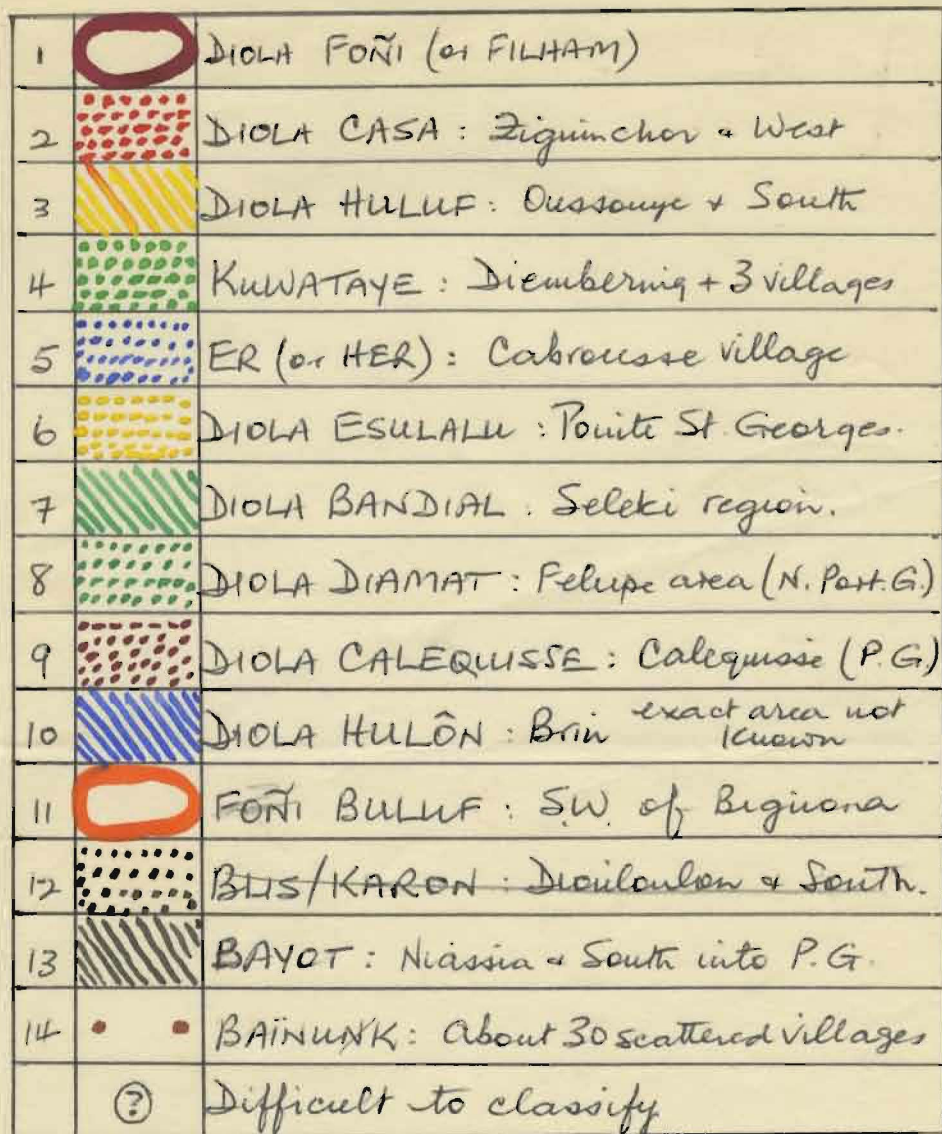 1 DIOLA FOÑI (or FILHAM)
2 DIOLA CASA: Ziguinchor & West
3 DIOLA HULUF: Oussouye & South
4 KUWATAYE: Diembering + 3 villages
5 ER (or HER): Cabrousse village
6 DIOLA ESULALU: Pointe St Georges.
7 DIOLA BANDIAL: Seleki region.
8 DIOLA DIAMAT: Felupe area (N. Port. G.)
9 DIOLA CALEQUISSE: Calequisse (P.G.)
10 DIOLA HULÔN: Brin exact area not
known
11 FOÑI BULUF: S.W. of Bignona
12 BLIS/KARON: Diouloulou & South.
13 BAYOT: Niassia & South into P.G.
14 BAÏNUNK: About 30 scattered villages
? Difficult to classify